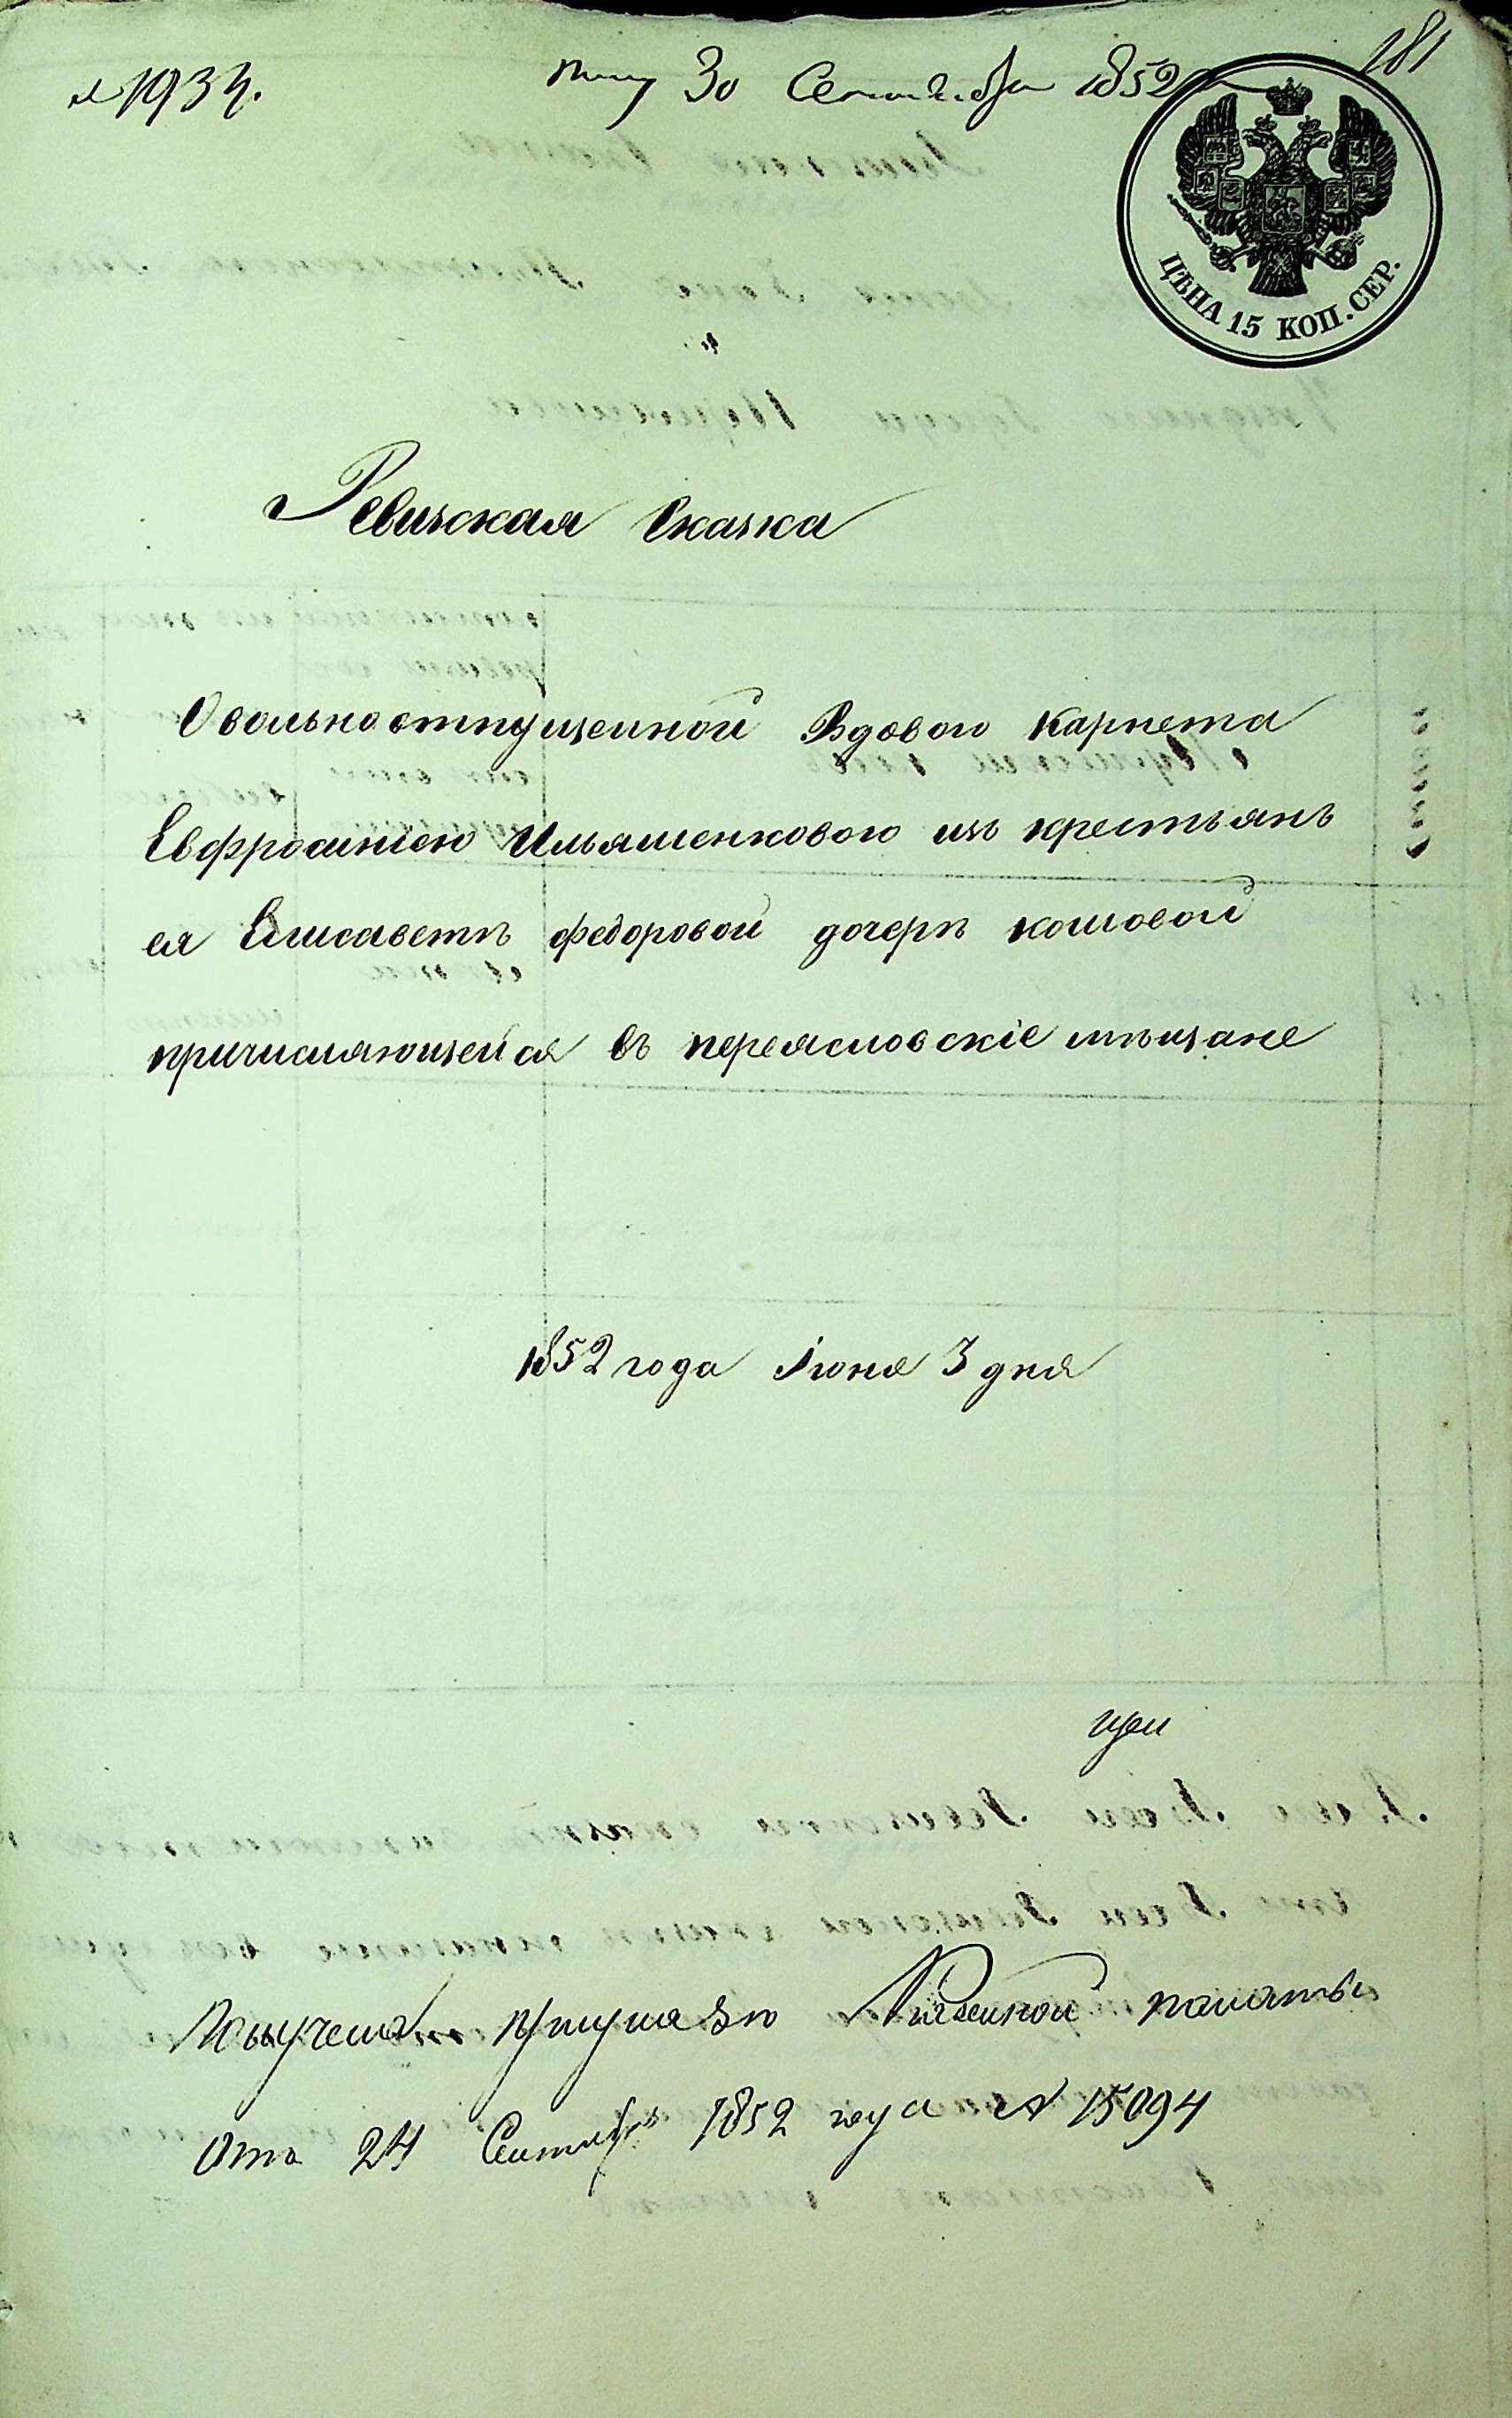 № 1934.
30 Сентября 1852
181
ЦѢНА 15 КОП. СЕР.
Ревизская Сказка
О вольноотпущенной Вдовою Карнета
Евфросиніею Ильяшенковою изъ крестьянъ
ея Елисаветѣ федоровой дочерѣ кошовой
причисляющейся въ переясловскіе мѣщане
1852 года Іюня 3 дня
при
Получена при указѣ Казенной палаты
Отъ 24 Сентября 1852 года № 15094